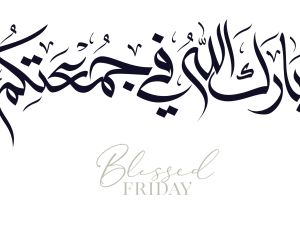 بارك الله في جمعتكم
Blessed
FRIDAY